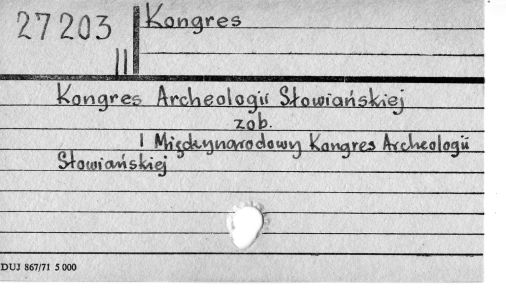 27203
II
Kongres
Kongres Archeologii Słowiańskiej
zob.
I Międzynarodowy Kongres Archeologii
Słowiańskiej
DUJ 867/71 5 000